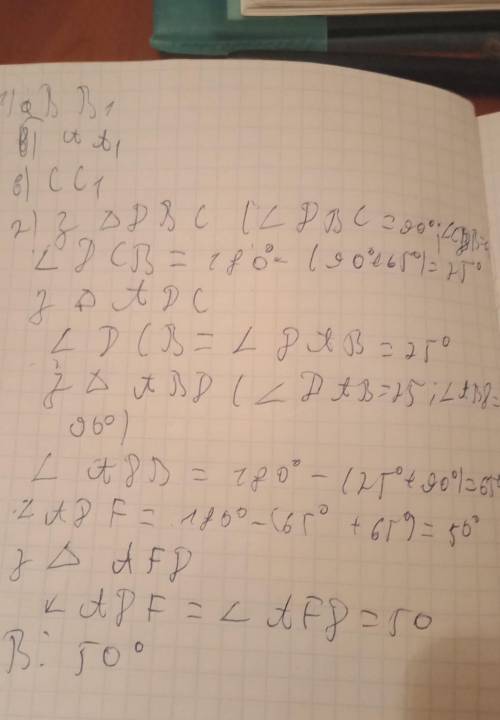 1) a B B1
б) A A1
в) C C1
2) З Δ D B C (∠ D B C = 90°; ∠CDB=
∠ D C B = 180° - (90°+65°) = 25°
З Δ A D C
∠ D C B = ∠ D A B = 25°
З Δ A B D (∠ D A B = 25; ∠ABD=
90°)
∠ A D B = 180° - (25° + 90°) = 65°
∠ A D F = 180° - (65° + 65°) = 50°
З Δ A F D
∠ A D F = ∠ A F D = 50
В: 50°